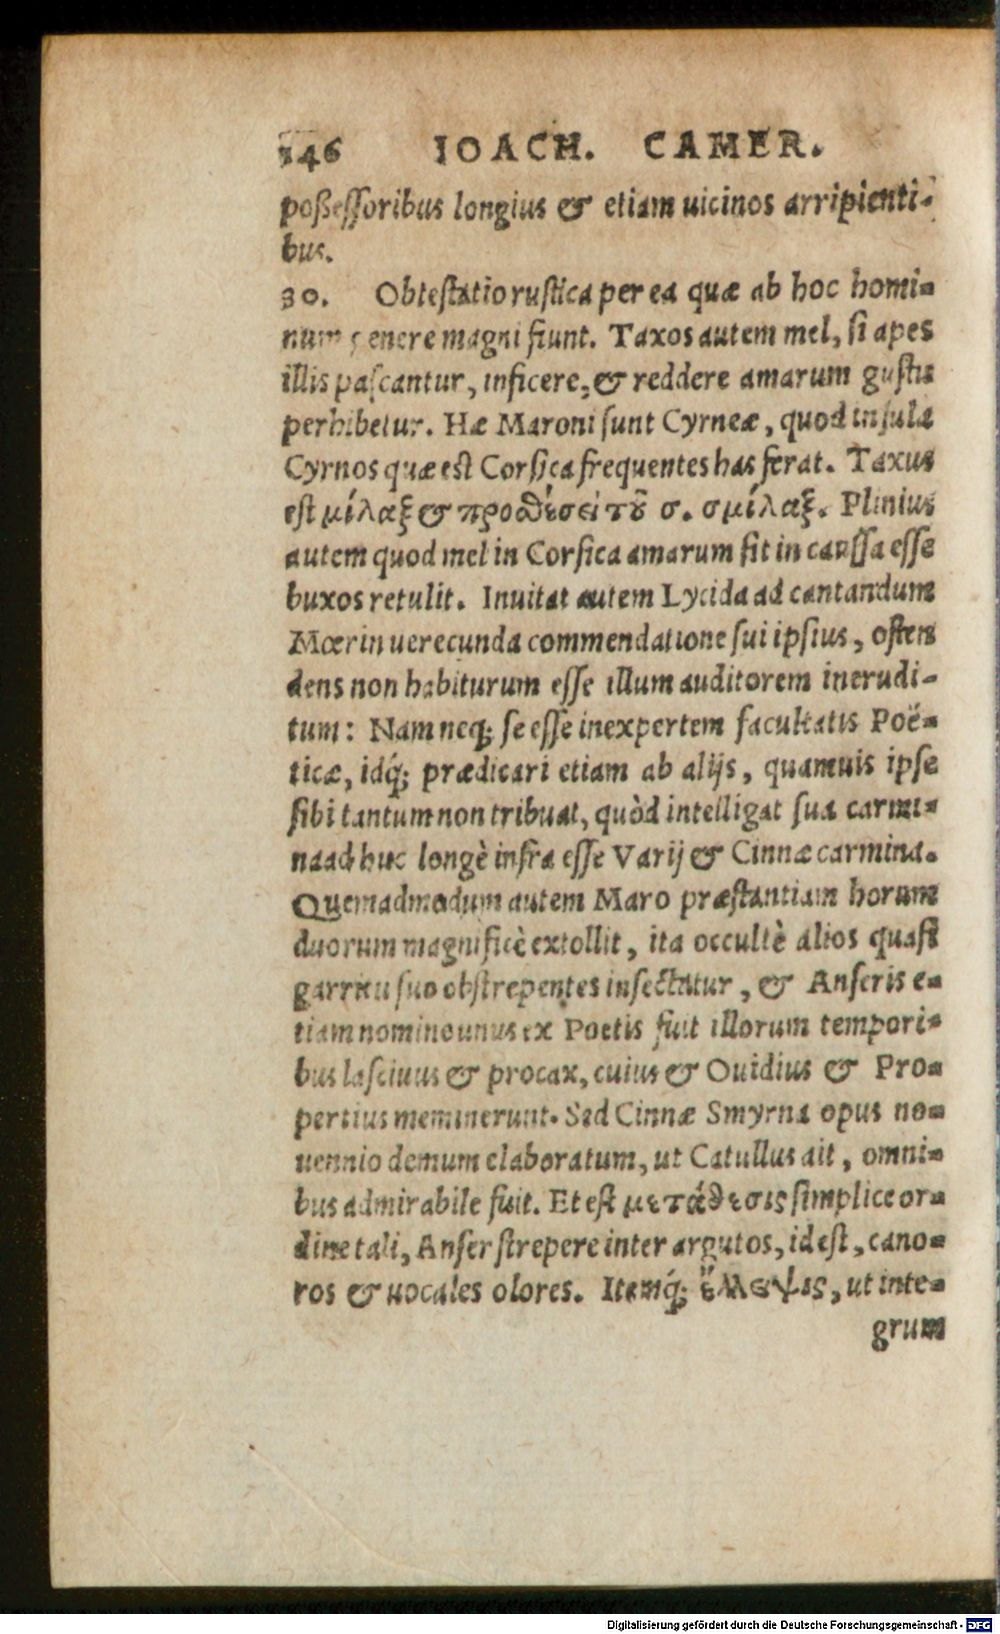 146 IOACH. CAMER.
poßessoribus longius & etiam uicinos arripienti-
bus.
30. Obtestatio rustica per ea quæ ab hoc homi-
num genere magni fiunt. Taxos autem mel, si apes
illis pascantur, inficere, & reddere amarum gustu
perhibetur. Hæ Maroni sunt Cyrneæ, quod insula
Cyrnos quæ est Corsica frequentes has ferat. Taxus
est μίλαξ & προθέσει τοῦ σ. σμίλαξ. Plinius
autem quod mel in Corsica amarum fit in caussa esse
buxos retulit. Inuitat autem Lycida ad cantandum
Mœrin uerecunda commendatione sui ipsius, osten
dens non habiturum esse illum auditorem inerudi-
tum: Nam neq; se esse inexpertem facultatis Poë-
ticæ, idq́; prædicari etiam ab alijs, quamuis ipse
sibi tantum non tribuat, quòd intelligat sua carmi-
na adhuc longè infra esse Varij & Cinnæ carmina.
Quemadmodum autem Maro præstantiam horum
duorum magnificè extollit, ita occultè alios quasi
garritu suo obstrepentes insectatur, & Anseris e-
tiam nomine unus ex Poetis fuit illorum tempori-
bus lasciuus & procax, cuius & Ouidius & Pro-
pertius meminerunt. Sed Cinnæ Smyrna opus no-
uennio demum elaboratum, ut Catullus ait, omni-
bus admirabile fuit. Et est μετάθεσις simplice or-
dine tali, Anser strepere inter argutos, id est, cano-
ros & uocales olores. Itemq́; ἔλλειψις, ut inte-
grum
Digitalisierung gefördert durch die Deutsche Forschungsgemeinschaft - DFG